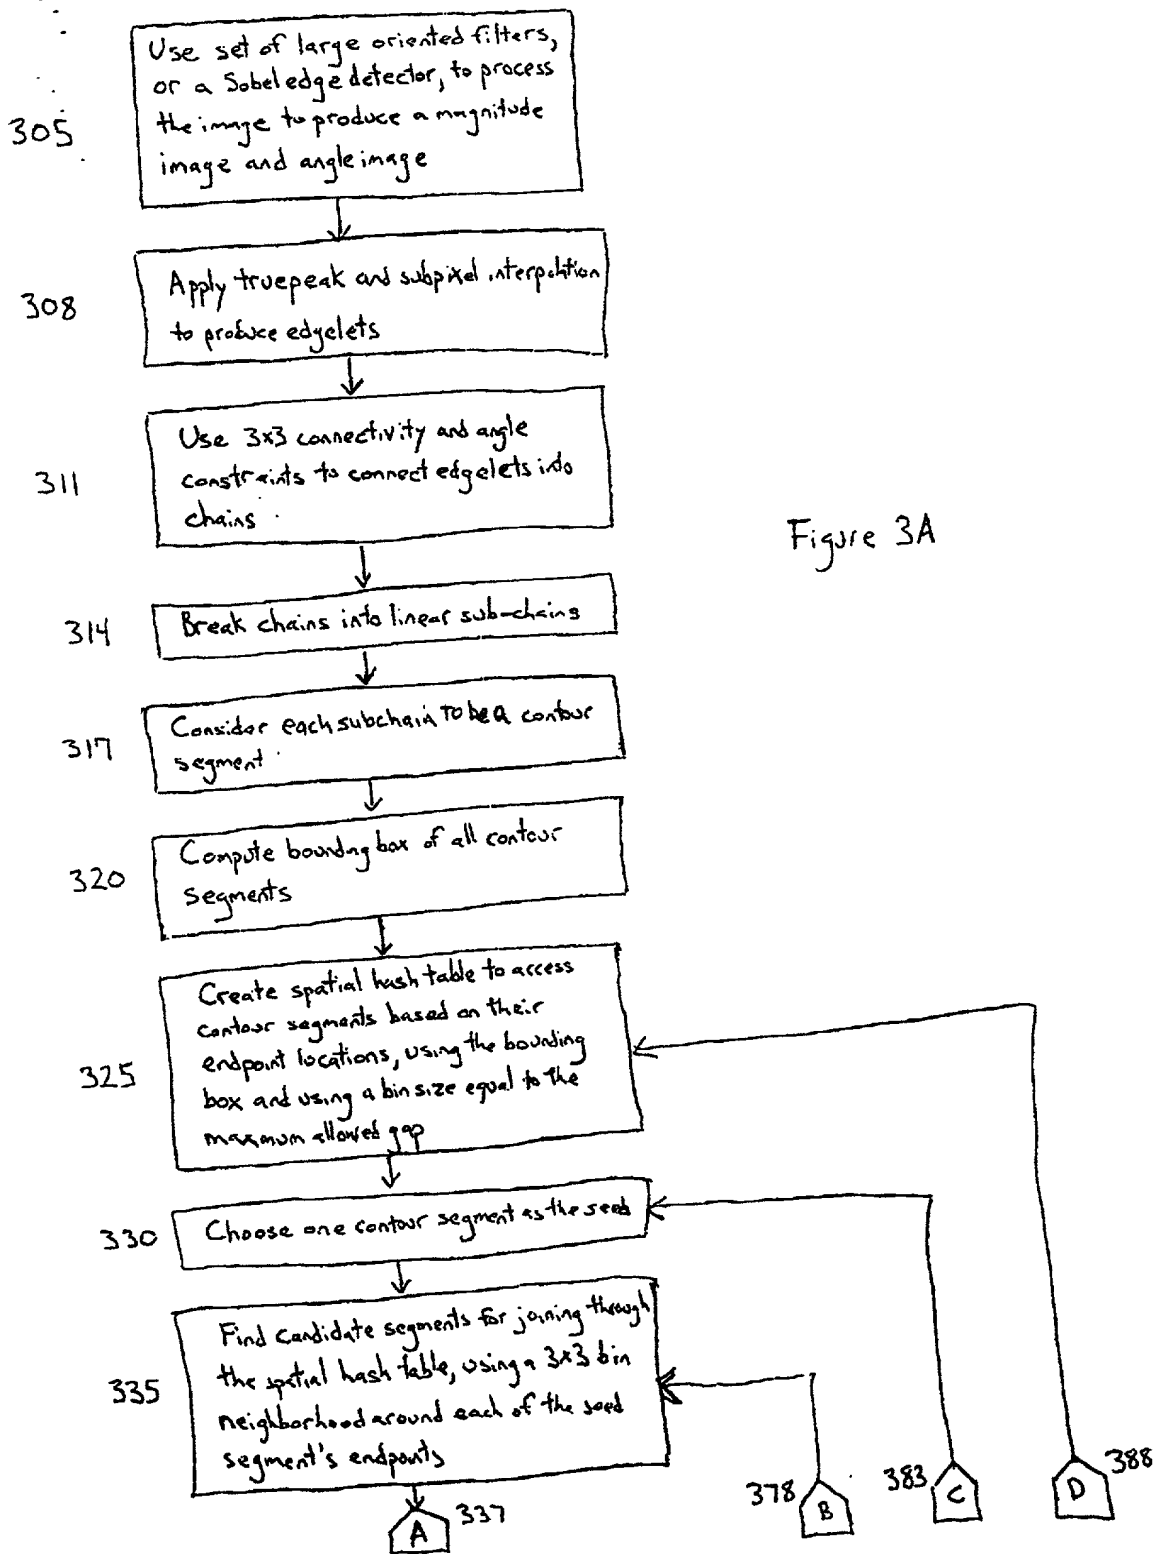 305
Use set of large oriented filters,
or a Sobel edge detector, to process
the image to produce a magnitude
image and angle image
308
Apply truepeak and subpixel interpolation
to produce edgelets
311
Use 3x3 connectivity and angle
constraints to connect edgelets into
chains
Figure 3A
314
Break chains into linear sub-chains
317
Consider each subchain to be a contour
segment
320
Compute bounding box of all contour
segments
325
Create spatial hash table to access
contour segments based on their
endpoint locations, using the bounding
box and using a bin size equal to the
maximum allowed gap
330
Choose one contour segment as the seed
335
Find candidate segments for joining through
the spatial hash table, using a 3x3 bin
neighborhood around each of the seed
segment's endpoints
A 337
378 B
383 C
D 388